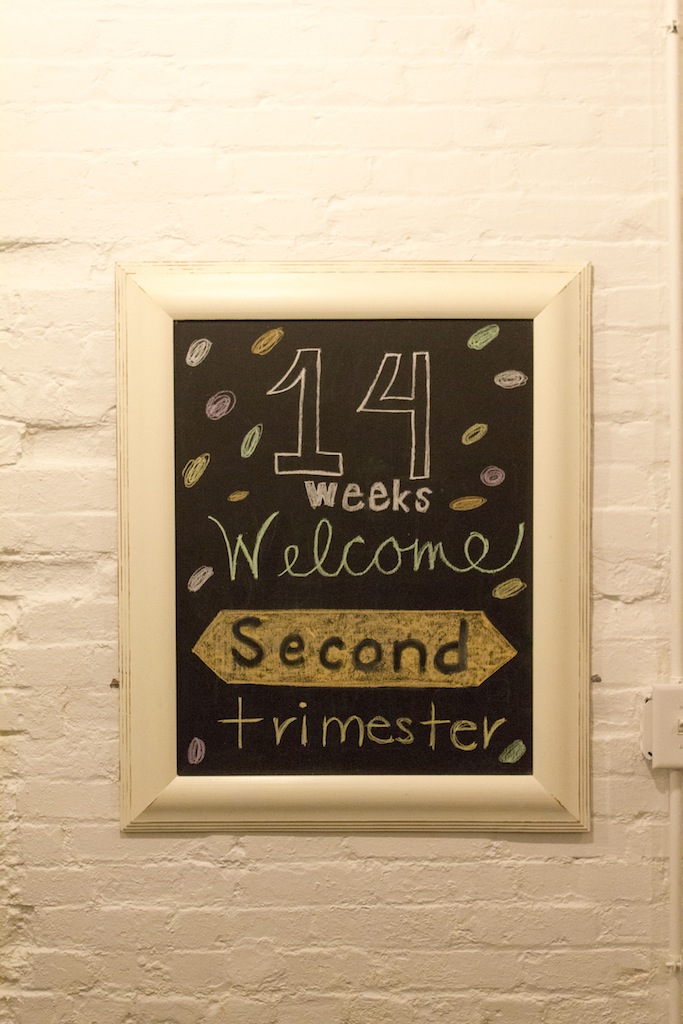 14
weeks
Welcome
Second
trimester